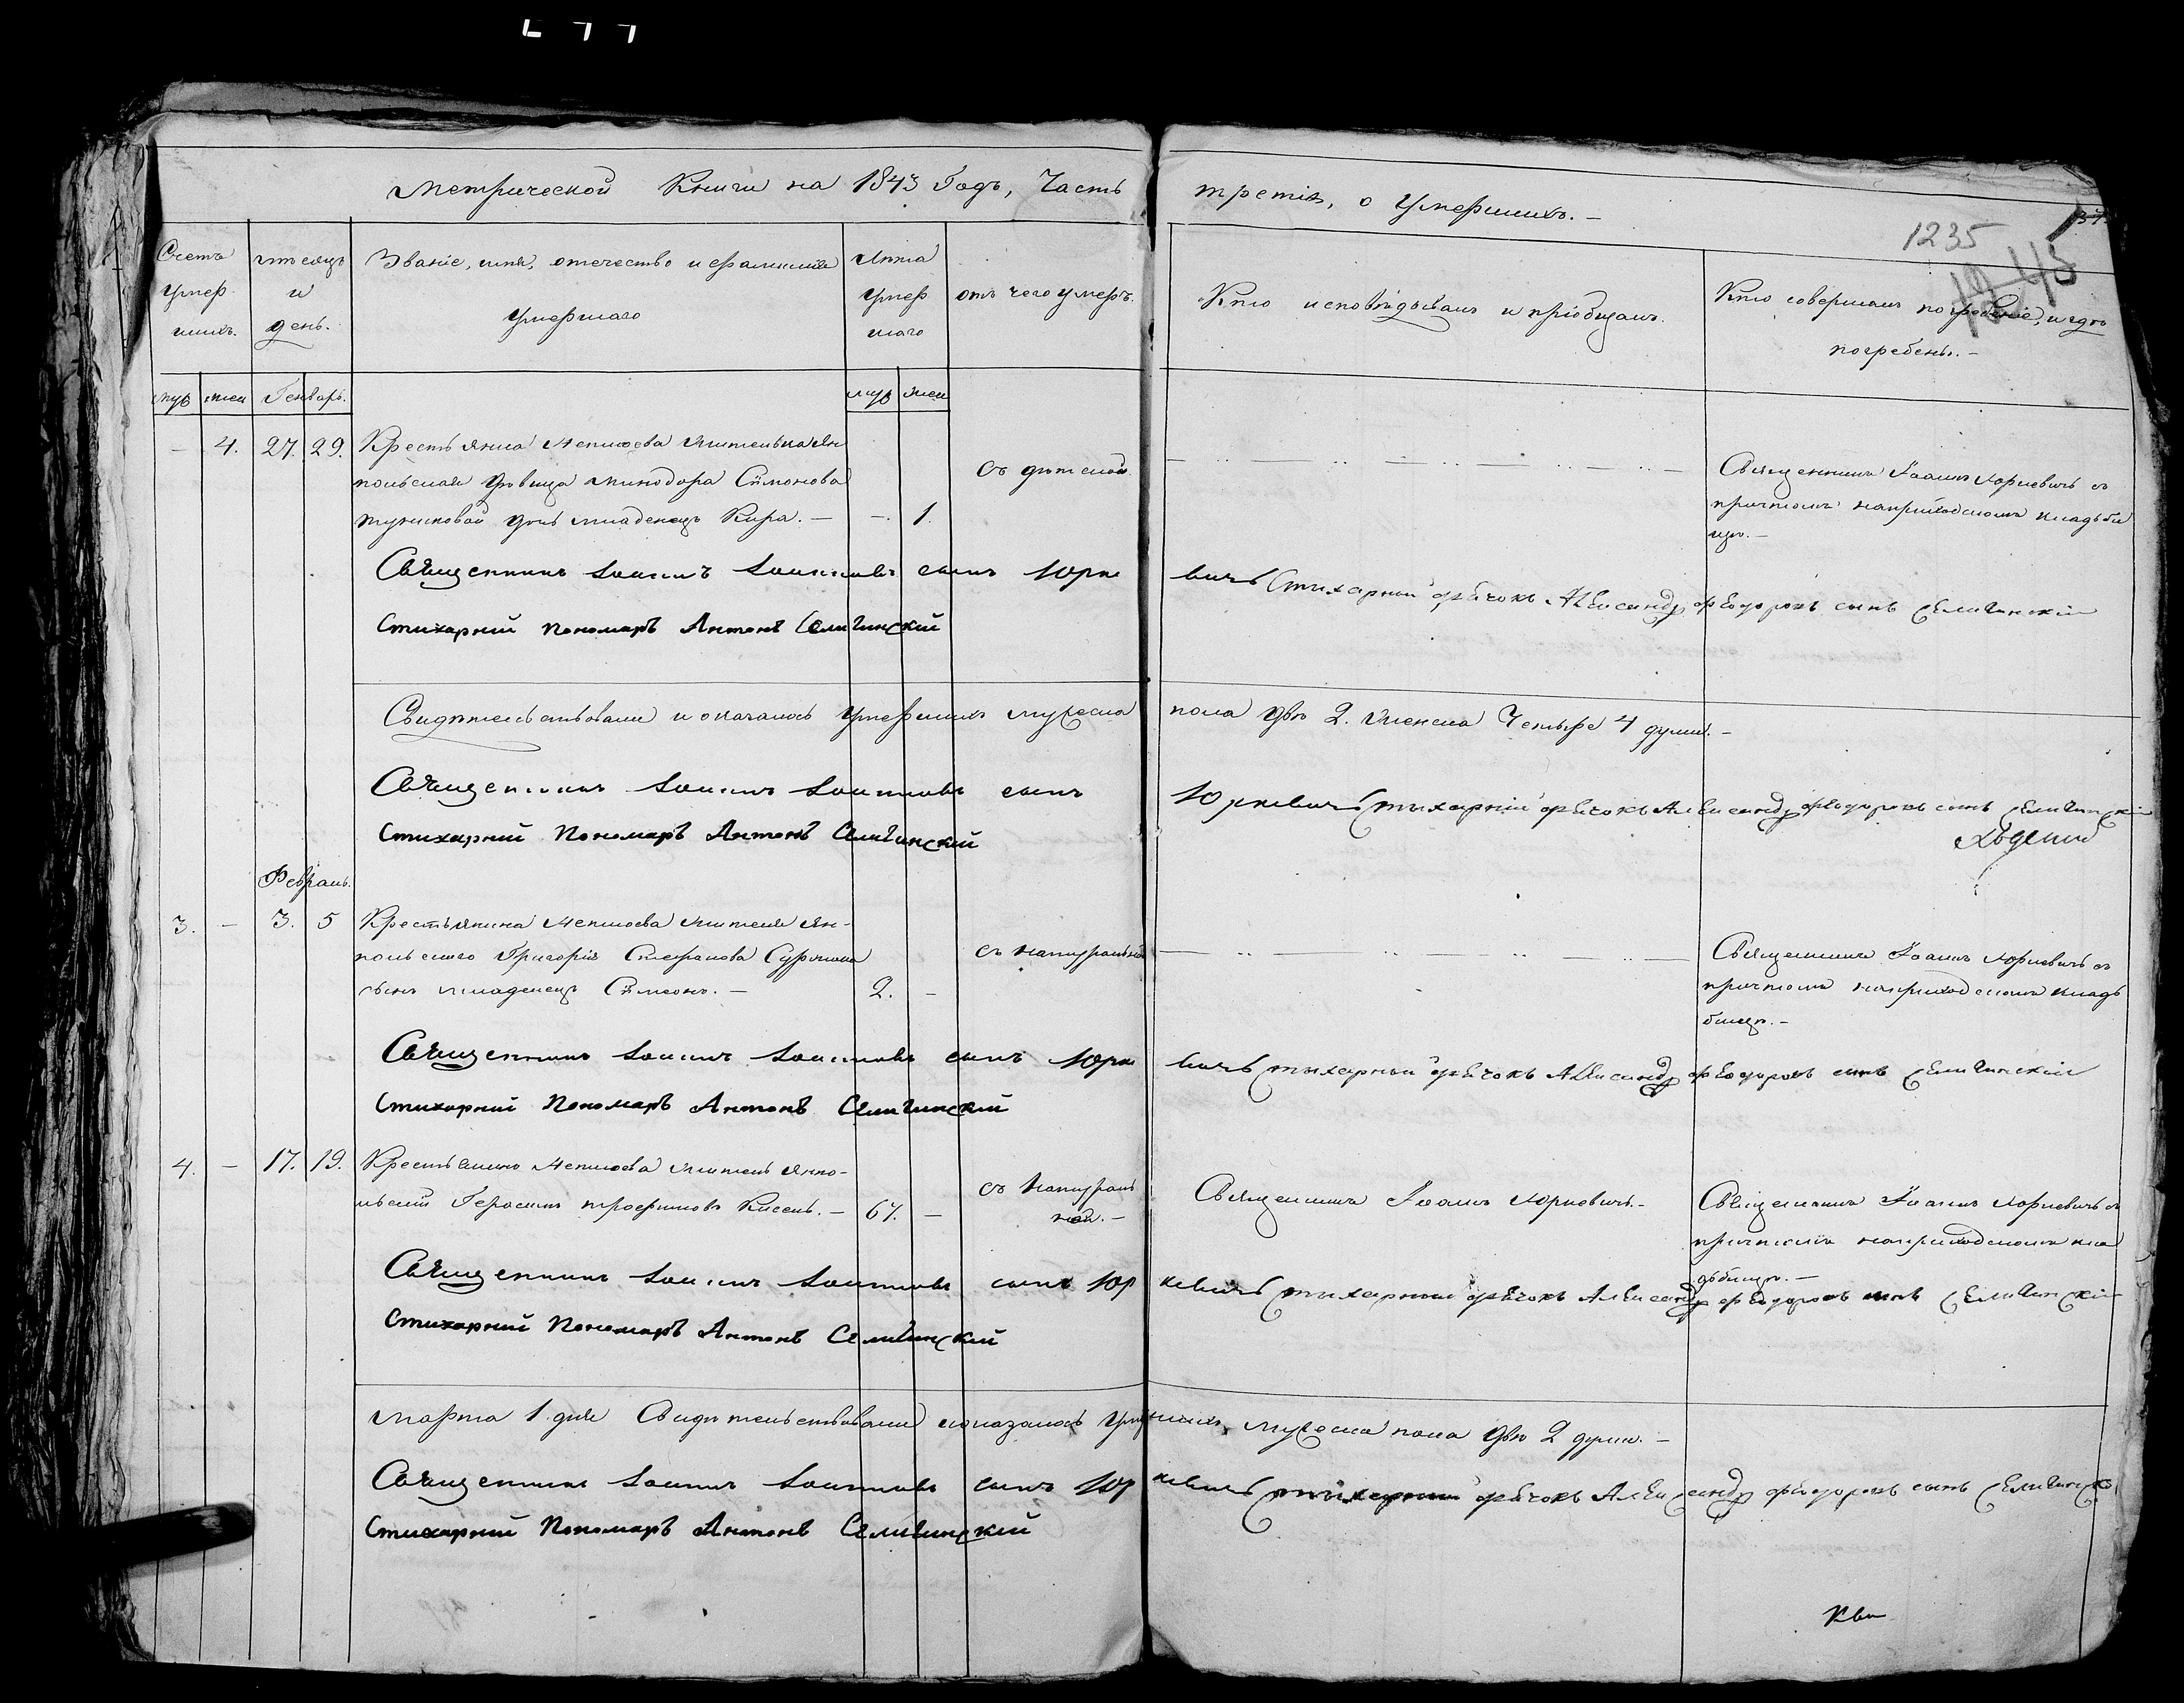 Метрической Книги на 1843 Годъ, Часть третія, о Умершихъ. –
1235
Счетъ умер шихъ.
мѣсяцъ и день.
Званіе, имя, отечество и фамилія умершаго
Лѣта умер шаго
отъ чего умеръ.
Кто исповѣдывалъ и пріобщалъ.
Кто совершалъ погребеніе, и гдѣ погребенъ. –
муж жен Генварь. муж жен
– 4. 27. 29. Крестьянина
польская дѣвица Минодора Сѵмонова
дочь младенецъ Кира. – – 1.
съ дѣтской
Священникъ Іоаннъ Юркевичъ съ
причтомъ на приходскомъ кладби
щѣ. –
Священникъ Іоаннъ Іоанновъ сынъ Юрке вичъ Стихарный дьячокъ Александръ Феодоровъ сынъ Селигинскій
Стихарний Пономаръ Антонъ Селигинскій
Свидѣтельствовали и оказалось Умершихъ мужеска пола двѣ 2. женска Четыре 4 души. –
Священникъ Іоаннъ Іоанновъ сынъ Юркевичъ Стихарній дьячокъ Александръ Феодоровъ сынъ Селигинскій
Стихарний Пономаръ Антонъ Селигинскій
Февраль.
3. – 3. 5 Крестьянина жителя Ян-
польскаго Григорія Стефанова
сынъ младенецъ Сѵмеонъ. – 2. –
съ натуральной
Священникъ Іоаннъ Юркевичъ съ
причтомъ на приходскомъ клад
бищѣ. –
Священникъ Іоаннъ Іоанновъ сынъ Юрке вичъ Стихарный дьячокъ Александръ Феодоровъ сынъ Селигинскій
Стихарний Пономаръ Антонъ Селигинскій
4. – 17. 19. житель Янпо-
льскій Герасимъ Трофимовъ – 67. –
съ натураль
ной. –
Священникъ Іоаннъ Юркевичъ. –
Священникъ Іоаннъ Юркевичъ съ
причтомъ на приходскомъ кла
дбищѣ. –
Священникъ Іоаннъ Іоанновъ сынъ Юр кевичъ Стихарный дьячокъ Александръ Феодоровъ сынъ Селигинскій
Стихарний Пономаръ Антонъ Селигинскій
Марта 1 дня Свидѣтельствовали и оказалось Умершихъ мужеска пола двѣ 2 души. –
Священникъ Іоаннъ Іоанновъ сынъ Юр кевичъ Стихарный дьячокъ Александръ Феодоровъ сынъ Селигинскій
Стихарний Пономаръ Антонъ Селигинскій